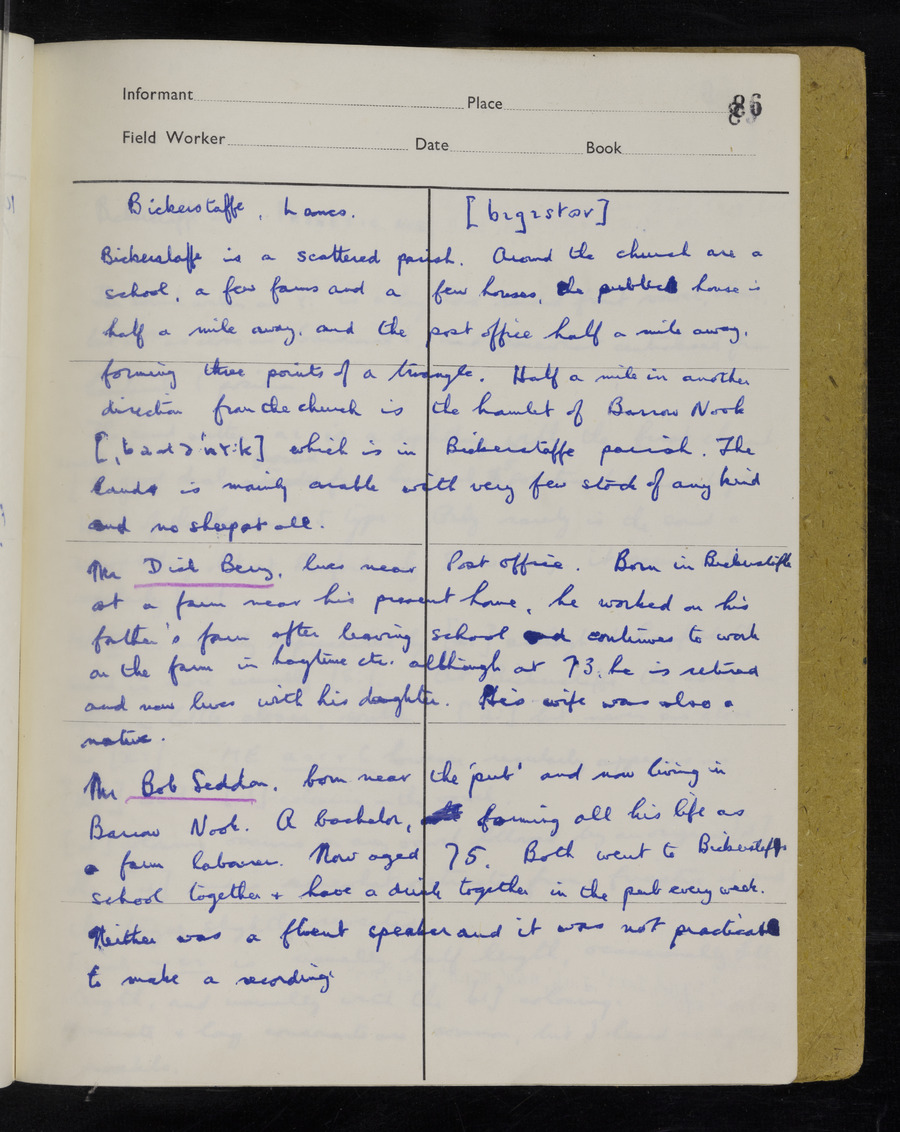 Informant Place 86
Field Worker Date Book
Bickerstaffe, Lancs. [bɪgɪstər]
Bickerstaffe is a scattered parish. Around the church are a
school, a few farms and a few houses, the public house is
half a mile away, and the post office half a mile away,
forming three points of a triangle. Half a mile in another
direction from the church is the hamlet of Barrow Nook
which is in Bickerstaffe parish. The
land is mainly arable with very few stock of any kind
and no sheep at all.
Mr Dick Berry, lives near Post office. Born in Bickerstaffe
at a farm near his present home, he worked on his
father's farm after leaving school and continues to work
on the farm in haytime etc. although at 73, he is retired
and now lives with his daughter. His wife was also a
native.
Mr Bob Seddon, born near the 'pub' and now living in
Barrow Nook. A bachelor, farming all his life as
a farm labourer. Now aged 75. Both went to Bickerstaffe
school together + have a drink together in the pub every week.
Neither was a fluent speaker and it was not practicable
to make a recording.